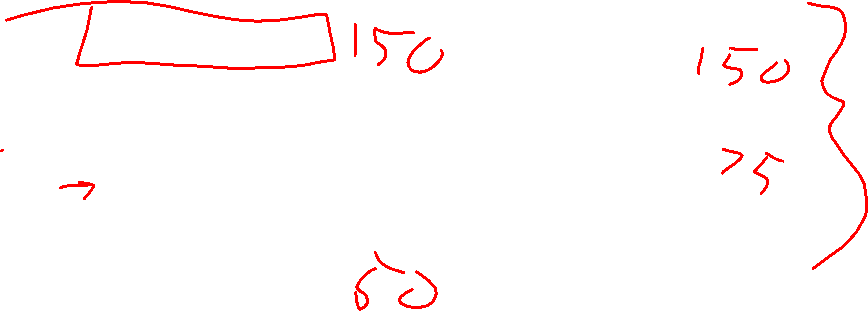 150
150
75
50